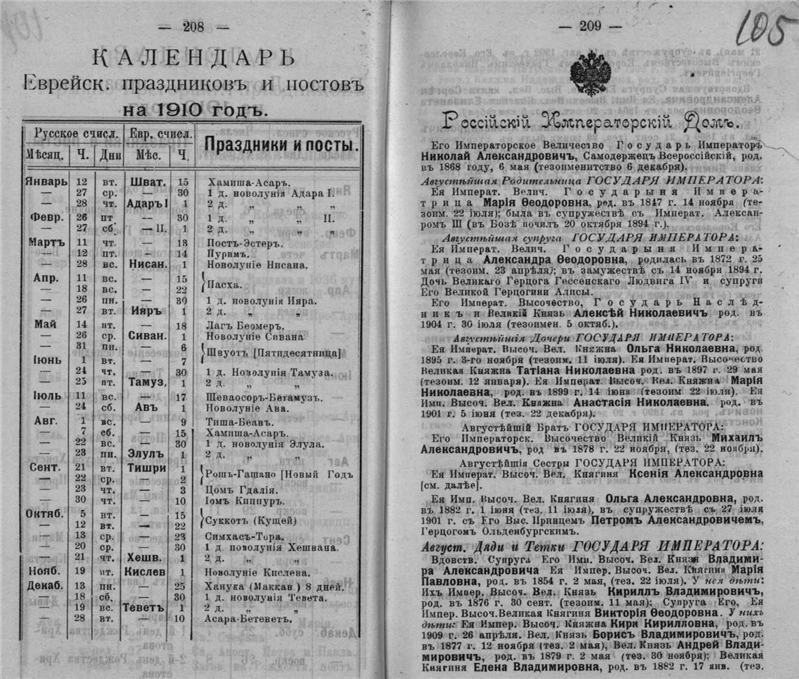 — 208 —
КАЛЕНДАРЬ
Еврейск. праздниковъ и постовъ
на 1910 годъ.
Русское счисл. Евр. счисл. Праздники и посты.
Мѣсяц. Ч. Дни Мѣс. Ч.
Январь 12 вт. Шват. 15 Хамиша-Асаръ.
— 27 ср. — 30 1 д. новолунія Адара I.
— 28 чт. Адаръ I 1 2 д. „ „
Февр. 26 пт — 30 1 д. „ „ II.
— 27 сб. — II. 1 2 д. „ „
Мартъ 11 чт. — 13 Постъ-Эстеръ.
— 12 пт. — 14 Пуримъ.
— 28 вс. Нисан. 1 Новолуніе Нисана.
Апр. 11 вс. — 15
Пасха.
— 18 вс. — 22
— 26 пн. — 30 1 д. новолунія Ияра.
— 27 вт. Ияръ 1 2 д. „ „
Май 14 пт. — 18 Лагъ Беомеръ.
— 26 ср. Сиван. 1 Новолуніе Сивана
— 31 пн. — 6
Швуотъ [Пятидесятница]
Іюнь 1 вт. — 7
— 24 чт. — 30 1 д. Новолунія Тамуза.
— 25 пт. Тамуз. 1 2 д. „ „
Іюль 11 вс. — 17 Шеваосоръ-Бетамузъ.
— 24 сб. Авъ 1 Новолуніе Ава.
Авг. 1 вс. — 9 Тиша-Беавъ.
— 7 сб. — 15 Хамиша-Асаръ.
— 22 вс. — 30 1 д. новолунія Элула.
— 23 пн. Элулъ 1 2 д. „ „
Сент. 21 вт. Тишри 1
Рошъ-Гашано [Новый Годъ
— 22 ср. — 2
— 23 чт. — 3 Цомъ Гдалія.
— 30 чт. — 10 Іомъ Кипнуръ.
Октяб. 5 вт. — 15
Суккотъ (Кущей)
— 12 вт. — 22
— 13 ср. — 23 Симхасъ-Тора.
— 20 ср. — 30 1 д новолунія Хешвана.
— 21 чт. Хешв. 1 2 д. „ „
Нояб. 19 пт. Кислев 1 Новолуніе Кислева.
Декаб. 13 пн. — 25 Ханука (Маккав ) 8 дней.
— 18 сб. — 30 1 д. новолунія Тевета.
— 19 вс. Теветъ 1 2 д. „ „
— 28 вт. — 10 Асара-Бетеветъ.
— 209 —
105
Россійскій Императорскій Домъ.
Его Императорское Величество Государь Императоръ
Николай Александровичъ, Самодержецъ Всероссійскій, род.
въ 1868 году, 6 мая (тезоименитство 6 декабря).
Августѣйшая Родительница ГОСУДАРЯ ИМПЕРАТОРА:
Ея Императ. Велич. Государыня Импера-
трица Марія Ѳеодоровна, род. въ 1847 г. 14 ноября (те-
зоим. 22 іюля); была въ супружествѣ съ Императ. Алексан-
ромъ III (въ Бозѣ почилъ 20 октября 1894 г.).
Августѣйшая супруга ГОСУДАРЯ ИМПЕРАТОРА:
Ея Императ. Велич. Государыня Импера-
трица Александра Ѳеодоровна, родилась въ 1872 г. 25
мая (тезоим. 23 апрѣля); въ замужествѣ съ 14 ноября 1894 г.
Дочь Великаго Герцога Гессенскаго Людвига IV и супруги
Его Великой Герцогини Алисы.
Его Императ. Высочество, Государь Наслѣд-
никъ и Великій Князь Алексѣй Николаевичъ род. въ
1904 г. 30 іюля (тезоимен. 5 октяб.).
Августѣйшія Дочери ГОСУДАРЯ ИМПЕРАТОРА:
Ея Императ. Высоч. Вел. Княжна Ольга Николаевна, род.
въ 1895 г. 3-го ноября (тезоим. 11 іюля). Ея Императ. Высочество
Великая Княжна Татіана Николаевна род. въ 1897 г. 29 мая
(тезоим. 12 января). Ея Императ. Высоч. Вел. Княжна Марія
Николаевна, род. въ 1899 г. 14 іюня (тезоим 22 іюля). Ея
Имп. Высоч. Вел. Княжна Анастасія Николаевна, род. въ
1901 г. 5 іюня (тез. 22 декабря).
Августѣйшій Братъ ГОСУДАРЯ ИМПЕРАТОРА:
Его Императорск. Высочество Великій Князь Михаилъ
Александровичъ, род въ 1878 г. 22 ноября, (тез. 22 ноября).
Августѣйшія Сестры ГОСУДАРЯ ИМПЕРАТОРА:
Ея Императ. Высоч. Вел. Княгиня Ксенія Александровна
[см. далѣе].
Ея Имп. Высоч. Вел. Княгиня Ольга Александровна, род.
въ 1882 г. 1 іюня (тез. 11 іюля), въ супружествѣ съ 27 іюля
1901 г. съ Его Выс. Принцемъ Петромъ Александровичемъ,
Герцогомъ Ольденбургскимъ.
Август. Дяди и Тетки ГОСУДАРЯ ИМПЕРАТОРА:
Вдовств. Супруга Его Имп. Высоч. Вел. Князя Владими-
ра Александровича Ея Импер. Высоч. Вел. Княгиня Марія
Павловна, род. въ 1854 г. 2 мая, (тез. 22 іюля). У нея дѣти:
Ихъ Импер. Высоч. Вел. Князь Кириллъ Владимировичъ,
род. въ 1876 г. 30 сент. (тезоим. 11 мая); Супруга Его, Ея
Импер. Высоч. Великая Княгиня Викторія Ѳеодоровна. У нихъ
дѣти: Ея Импер. Высоч. Княжна Кира Кирилловна, род. въ
1909 г. 26 апрѣля. Вел. Князь Борисъ Владимировичъ, род.
въ 1877 г. 12 ноября (тез. 2 мая), Вел. Князь Андрей Влади-
мировичъ, род. въ 1879 г. 2 мая (тез. 30 ноября); Великая
Княгиня Елена Владимировна, род. въ 1882 г. 17 янв. (тез.